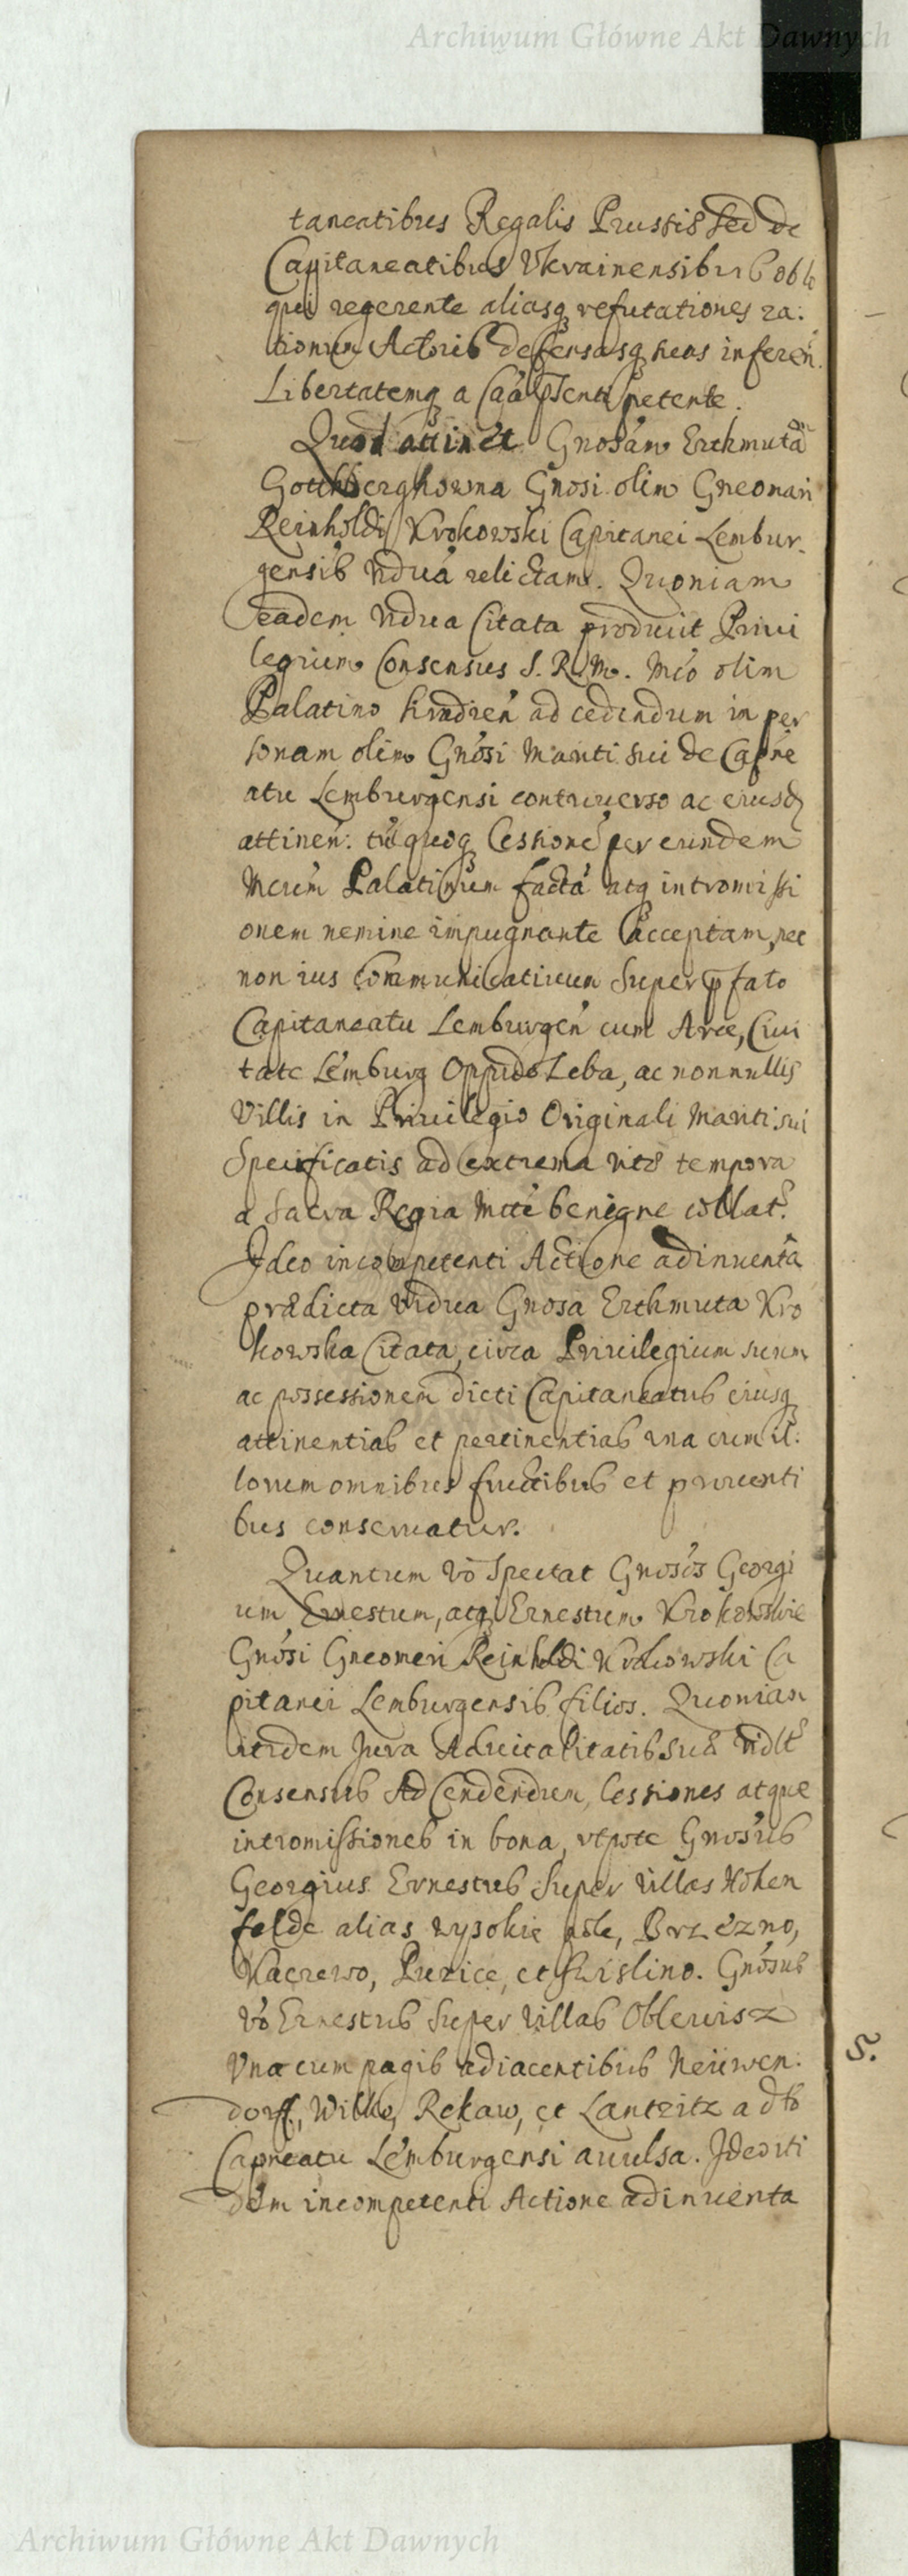 Archiwum Główne Akt Dawnych
taneatibus Regalis Prussis sed de
Capitaneatibus Ukrainensibus oblo
qui regerente aliasq refutationes ra:
tionum Actoris defensasq suas inferen.
Libertatemq a Caâ pñti petente.
Quod attinet Gnosam Erthmutâ
Gottbergkowna Gnosi olim Gneomari
Reinholdi Krokowski Capitanei Lembur-
gensis viduâ relictam. Quoniam
eadem Vidua Citata produxit Privi
legium Consensus S. R. M. Mco olim
Palatino ad cedendum in per
sonam olim Gnosi Mariti sui de Capne
atu Lemburgensi controverso ac eiusq
attinen: tũ quoq Cessione per eundem
Mcum Palatinum factâ atq intromissi
onem nemine impugnante acceptam, nec
non ius Communicativum Super pfato
Capitaneatu Lemburgen cum Arce, Civi
tate Lemburg Oppido Leba, ac nonnullis
Villis in Privilegio Originali Mariti sui
Specificatis ad extrema vitæ tempora
a Sacra Regia Mtte benigne collat.
Ideo incompetenti Actione adinventâ
prædicta Vidua Gnosa Erthmuta Kro
kowska Citata, circa Privilegium suum
ac possessionem dicti Capitaneatus eiusq
attinentias et pertinentias una cum il:
lorum omnibus fructibus et proventi
bus conservatur.
Quantum vo Spectat Gnosos Georgi
um Ernestum, atq Ernestum Krokowskie
Gnosi Gneomeri Reinholdi Krokowski Ca
pitanei Lemburgensis filios. Quoniam
itidem Jura Advitalitatis suæ vidlt
Consensus Ad Cendendum, Cessiones atque
intromissiones in bona, utpote Gnosus
Georgius Ernestus Super villas Hohen
felde alias wysokie pole, Brzezno,
Kaczewo, Puzice, et Swislino. Gnosus
vo Ernestus Super villas Oblewisz
Una cum pagis adiacentibus Neüwen:
dorff, Wilko, Rekaw, et Lantzitz a dto
Capneatu Lemburgensi avulsa. Ideo iti
dem incompetenti Actione adinventa
S.
Archiwum Główne Akt Dawnych